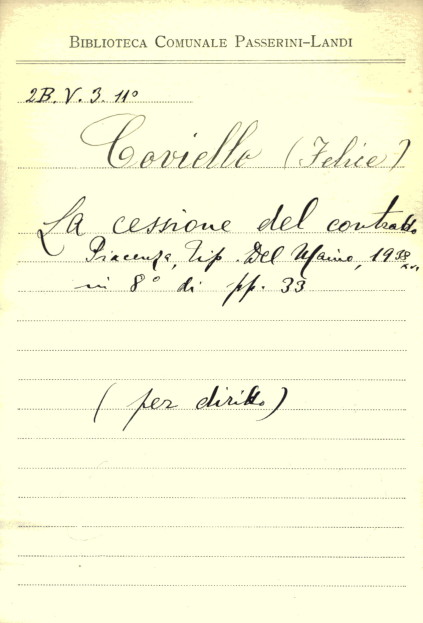 BIBLIOTECA COMUNALE PASSERINI-LANDI
2B. V. 3. 11°
Coviello (Felice)
La cessione del contratto
Piacenza, Tip. Del Maino, 1938
XVI
in 8° di pp. 33
(per diritto)